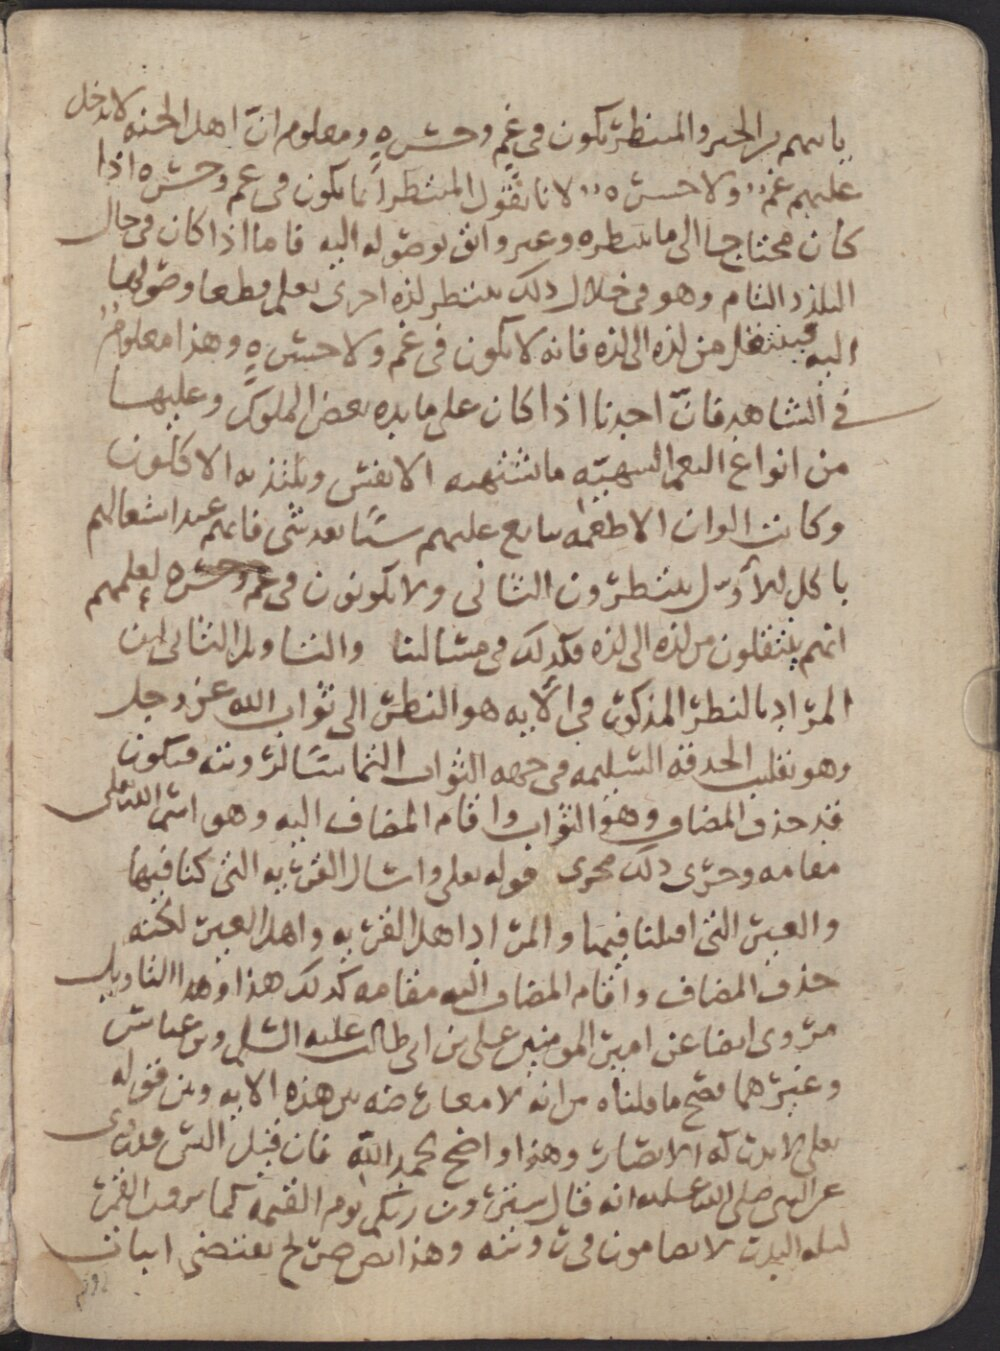 ياتيهم من الخير والمنتظر يكون في غم وحسره ومعلوم ان اهل الجنه لا يدخل
عليهم غم ولا حسره لانا نقول المنتظر انما يكون في غم وحسره اذا
كان محتاجا الى ما ينتظره وغير واثق بوصوله اليه فاما اذا كان في حال
التلذذ التام وهو في خلال ذلك ينتظر لذه اخرى يعلم قطعا وصولها
اليه فينتقل من لذه الى لذه فانه لا يكون في غم ولا حسره وهذا معلوم
في الشاهد فان احدنا اذا كان على مايده بعض الملوك وعليها
من انواع النعم السهيه ما تشتهيه الانفس ويلتذ به الاكلون
وكانت الوان الاطعمه تتابع عليهم شيا بعد شي فانهم عند اشتغالهم
باكل الاول ينتظرون الثاني ولا يكونون في غم وحسره لعلمهم
انهم ينتقلون من لذه الى لذه فكذلك في مسالتنا والتاويل الثاني ان
المراد بالنظر المذكور في الايه هو النظر الى ثواب الله عز وجل
وهو تقليب الحدقه السليمه في جهه الثواب التماسا لرويته فيكون
قد حذف المضاف وهو الثواب واقام المضاف اليه وهو اسم الله تعلى
مقامه وجرى ذلك مجرى قوله تعلى واسال القريه التي كنا فيها
والعير التي اقبلنا فيها والمراد اهل القريه واهل العير لكنه
حذف المضاف واقام المضاف اليه مقامه كذلك هذا وهذا التاويل
مروي ايضا عن امير المومنين علي بن ابي طالب عليه السلم وبن عباس
وغيرهما فصح ما قلناه من انه لا معارضه بين هذه الايه وبين قوله
تعلى لا تدركه الابصار وهذا واضح بحمد الله فان قيل اليس قد روي
عن النبي صلى الله عليه انه قال سترون ربكم يوم القيمه كما ترون القمر
ليله البدر لا تضامون في رويته وهذا نص صريح يقتضي اثبات